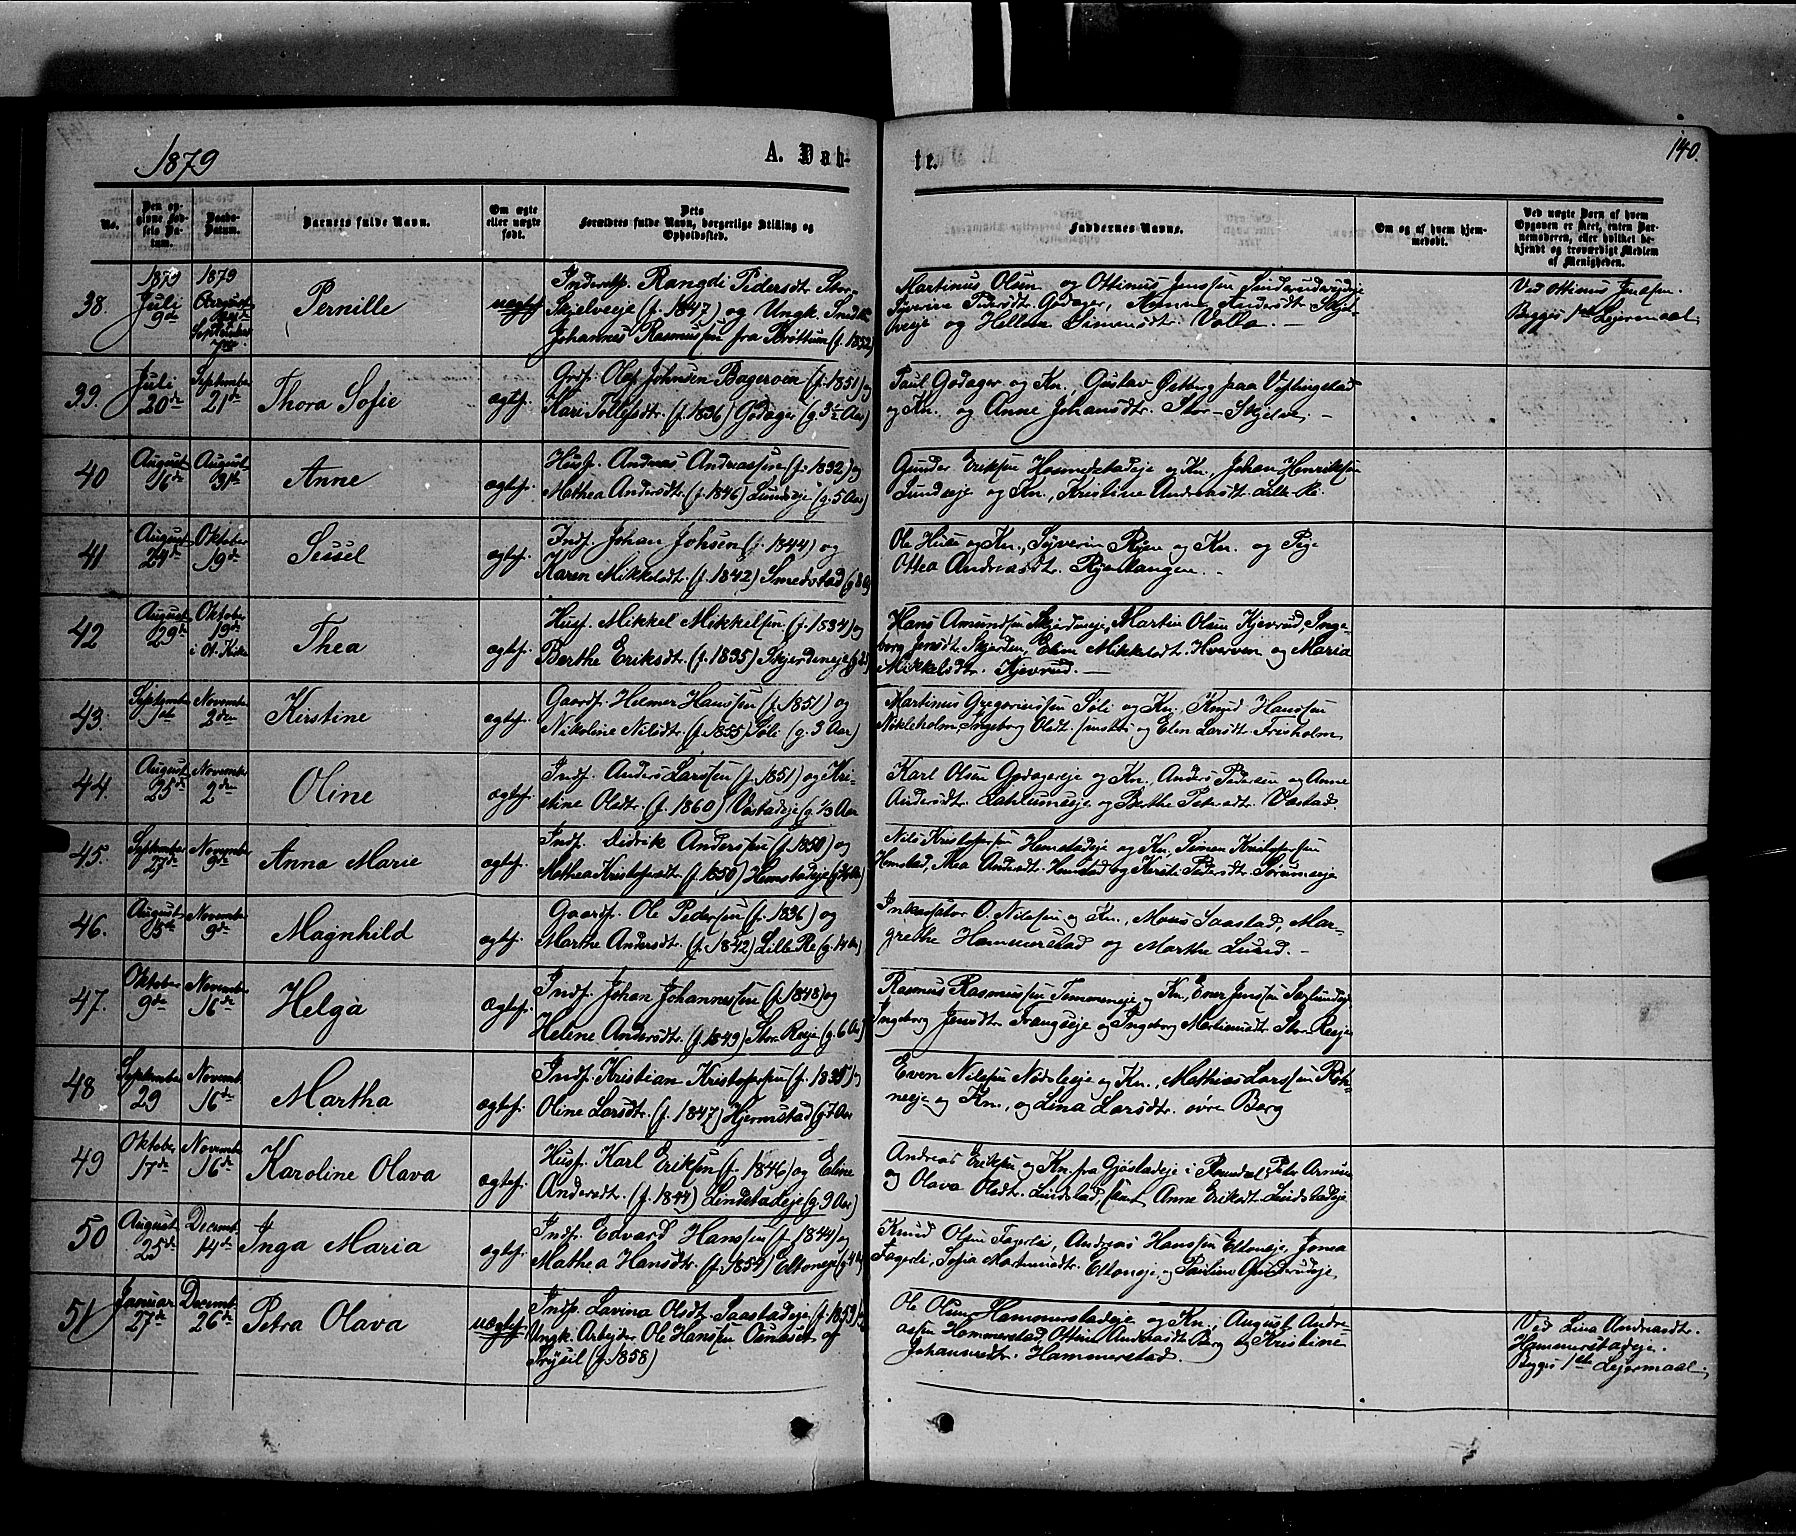 1879
A. Døb-
te.
140.
No.
Den op-
givne Fød-
sels Da-
tum.
Daabs-
Datum.
Barnets fulde Navn.
Om ægte
eller uægte
født.
Dets
Forældres fulde Navn, borgerlige Stilling og
Opholdssted.
Faddernes Navne.
Om og af hvem hjem-
medøbt.
Ved uægte Børn af hvem
Opgaven er skeet, enten Bar-
nemoderen, eller hvilket be-
kjendt og troværdigt Medlem
af Menigheden.
38.
1879
Juli
9de
1879
August
September
7de
Pernille
uægtef
Inderstp. Rangdi Pedersdtr. Stor-
Skjelveeje (f. 1847) og Ungk. Smed
Johannes Rasmussen fra Brøttum (f. 1852)
Martinus Olsen og Ottinus Jenssen
Syverine Pedersdtr. Godager, Anne Andersdtr. Skjel-
veeje og Hellene Simensdtr. Volla. —
Ved Ottinus Jenssen.
Begges 1ste Lejermaal
39.
Juli
20de
September
21de
Thora Sofie
ægtef.
Grdf. Olaf Johnsen Bageroen (f. 1851) og
Kari Tollefsdtr. (f. 1836) Godager (g 3½ Aar)
Paul Godager og Kn., Gustav Østberg paa Veflingstad
og Kn. og Anne Johansdtr. Stor-Skjelve. —
40
August
16de
August
31te
Anne
ægtef.
Husf. Andreas Andreassen (f. 1832) og
Mathea Andersdtr. (f. 1846) Lundseje (g. 5 Aar)
Gunder Eriksen Hosmestadeje og Kn., Johan Henriksen
Lundseje og Kn., Kristine Andreasdt. Lille-Re.
41
August
24de
Oktober
19de
Sessel
ægtef.
Indf. Johan Johsen (f. 1844) og
Karen Mikkelsdt. (f. 1842) Smedstad (g 8 Aar)
Ole Huse og Kn., Syverin Ryen og Kn. og Pige
Ottea Andreasdtr. Ryestangen. —
42
August
29de
Oktober
19de
i Ot. Kirke
Thea
ægtef.
Husf. Mikkel Mikkelsen (f. 1834) og
Berthe Eriksdtr. (f. 1835) Skjerdeneje
Hans Amundsen Skjerdeneje, Martin Olsen Kjevrud, Inge-
borg Jensdt. Skjerden, Eline Mikkelsdt. Hverven og Maria
Mikkelsdtr. Kjevrud. —
43.
September
1ste
November
2den
Kirstine
ægtef.
Gaardf. Helmer Hanssen (f. 1851) og
Nikoline Nilsdt. (f. 1855) Sôli (g. 3 Aar)
Martinus Gregoriussen Sôli og Kn., Knud Hanssen
Nökleholm, Ingeborg Olsdt. og Elen Larsdt. Frisholm
44.
August
25de
November
2den
Oline
ægtef.
Indf. Anders Larssen (f. 1851) og Kri-
stine Olsdt. (f. 1860) Vestadeje (g. 1/3 Aar
Karl Olsen Godagereje og Kn., Anders Pedersen og Anne
Andersdt. Lahlumseje og Berthe Pedersdt. Vestad.
45.
September
27de
November
9de
Anna Marie
ægtef.
Indf. Didrik Anderssen (f. 1850) og
Mathea Kristofersdt. (f. 1850) Hemstadeje
Nils Kristofersen Hemstadeje og Kn., Simen Kristofersen
Hemstad, Thea Andersdt. Hemstad og Kersti Pedersdt. Sørumseje
46.
August
15de
November
9de
Magnhild
ægtef.
Gaardf. Ole Pedersen (f. 1836) og
Marthe Andersdt. (f. 1842) Lille Re (g. 14 Aar)
Inkassator O. Nilssen og Kn., Moses Saastad, Mar-
grethe Hammerstad og Marthe Lund. —
47.
Oktober
9de
November
16de
Helga
Ægtef.
Indf. Johan Johannessen (f. 1848) og
Helene Andersdt. (f. 1849) Stor Reeje (g. 6 Aar)
Rasmus Rasmussen Tommeneje og Kn., Ener Jenssen
Ingeborg Jensdt. Frangseje og Ingeborg Martinusdt. Stor-Reeje
48
September
29
Novemb.
16de
Martha
ægtef.
Indf. Kristian Kristofersen (f. 1835) og
Oline Larsdt. (f. 1847) Hjermstad (g 7 Aar
Even Nilssen Nodsleeje og Kn., Mathias Larssen Røh-
neeje og Kn., og Lina Larsdtr. øvre Berg
49
Oktober
17de
November
16de
Karoline Olava
ægtef.
Husf. Karl Eriksen (f. 1846) og Eline
Andersdt. (f. 1844) Lindstadeje (g. 9 Aar)
Andreas Eriksen og Kn. fra Gjøstadeje i Romedal, Peter Arnesen
og Olava Olsdt. Lindstad samt Anne Eriksdt. Lindstadeje
50
August
25de
Decemb.
14de
Inga Maria
ægtef.
Indf. Edvard Hanssen (f. 1844) og
Mathea Hansdtr. (f. 1854) Eltoneje (g. 4 Aar)
Knud Olsen Fagerli, Andreas Hanssen Eltoneje, Jonea
Fagerli, Sofia Martinusdtr. Eltoneje og Pauline
51
Januar
27de
Decemb.
26de
Petra Olava
uægtef.
Indp. Lavina Olsdt. Saastadeje (f. 1859) og
Ungk. Arbejder Ole Hanssen af
Trysil (f. 1858)
Ole Olsen Hammerstadeje og Kn., August Andre-
assen Hammerstad, Ottine Andreasdt. Berg og Kristine
Johannesdt. Hammerstad.
Ved Lina Andreasdt.
Hammerstadeje.
Begges 1ste Lejermaal